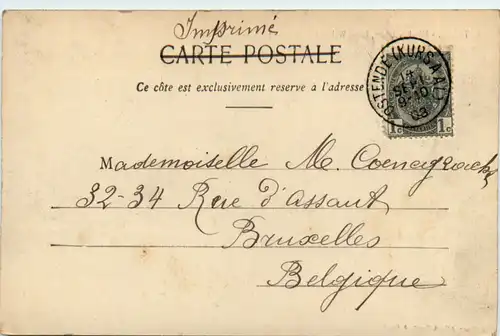 Imprimé
CARTE POSTALE
Ce côte est exclusivement reserve a l'adresse
OSTENDE (KURSAAL)
SEPT
9-10
03
1c 1c
Mademoiselle M.
32-34 Rue d'Assaut
Bruxelles
Belgique